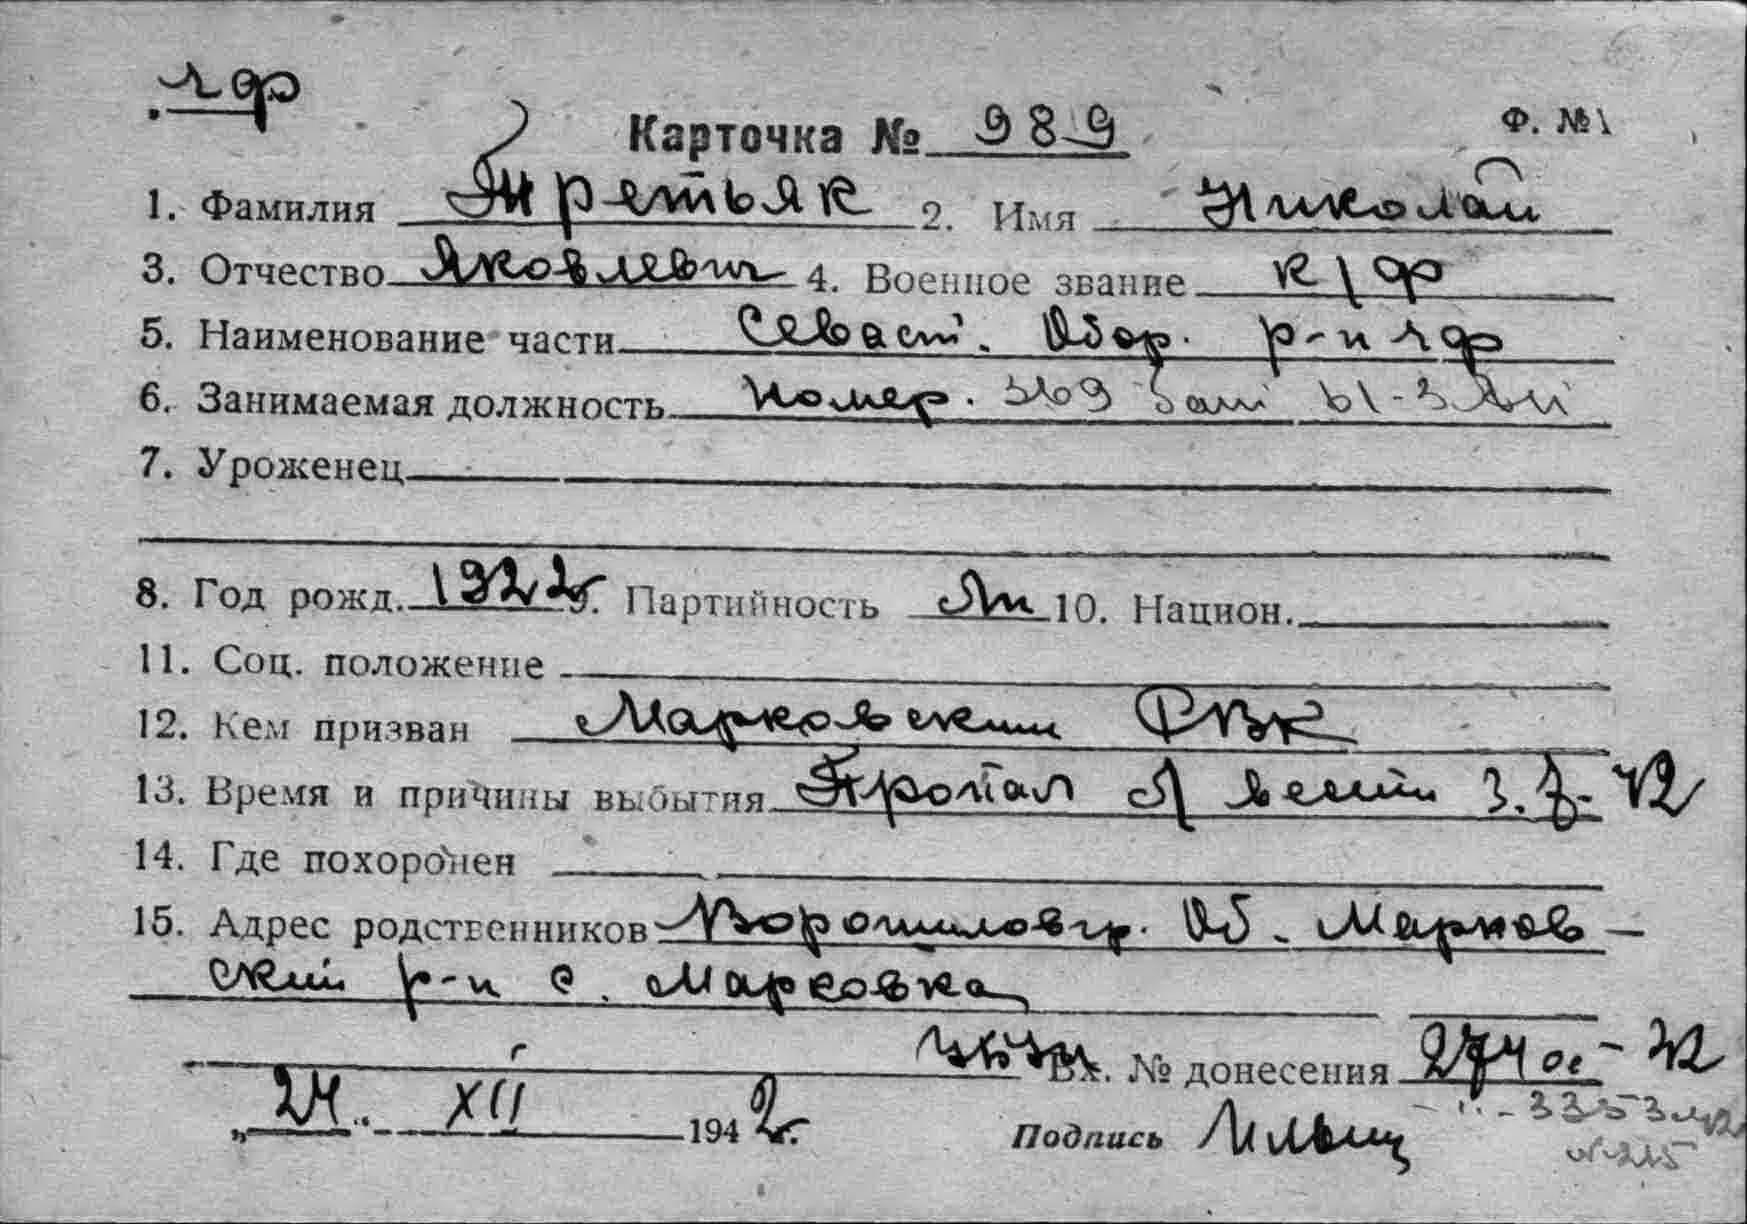 чф
Карточка № 989 Ф. №1
1. Фамилия Третьяк 2. Имя Николай
3. Отчество Яковлевич 4. Военное звание к/ф
5. Наименование части Севаст. Обор. р-н чф
6. Занимаемая должность Номер. 369 бат
7. Уроженец
8. Год рожд. 1922г. Партийность 10. Национ.
11. Соц. положение
12. Кем призван Марковским РВК
13. Время и причины выбытия Пропал б/вести 3.7.42
14. Где похоронен
15. Адрес родственников Ворошиловгр. Об. Марков-
ский р-н с. Марковка
Вх. № донесения 274
„24" XII 1942г.
Подпись